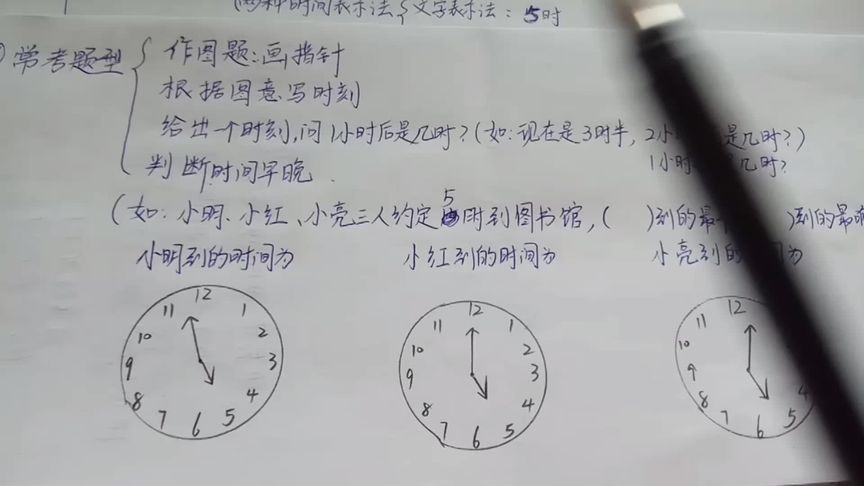 两种时间表示法 文字表示法：5时
常考题型
作图题：画指针
根据图意写时刻
给出一个时刻，问1小时后是几时？（如：现在是3时半，2小 是几时？）
1小时 几时？
判断时间早晚．
（如：小明、小红、小亮三人约定5时到图书馆，（ ）到的最 ）到的最
小明到的时间为
小红到的时间为
小亮到的 为
12 1 2 3 4 5 6 7 8 9 10 11
12 1 2 3 4 5 6 7 8 9 10 11
12 4 5 6 7 8 9 10 11